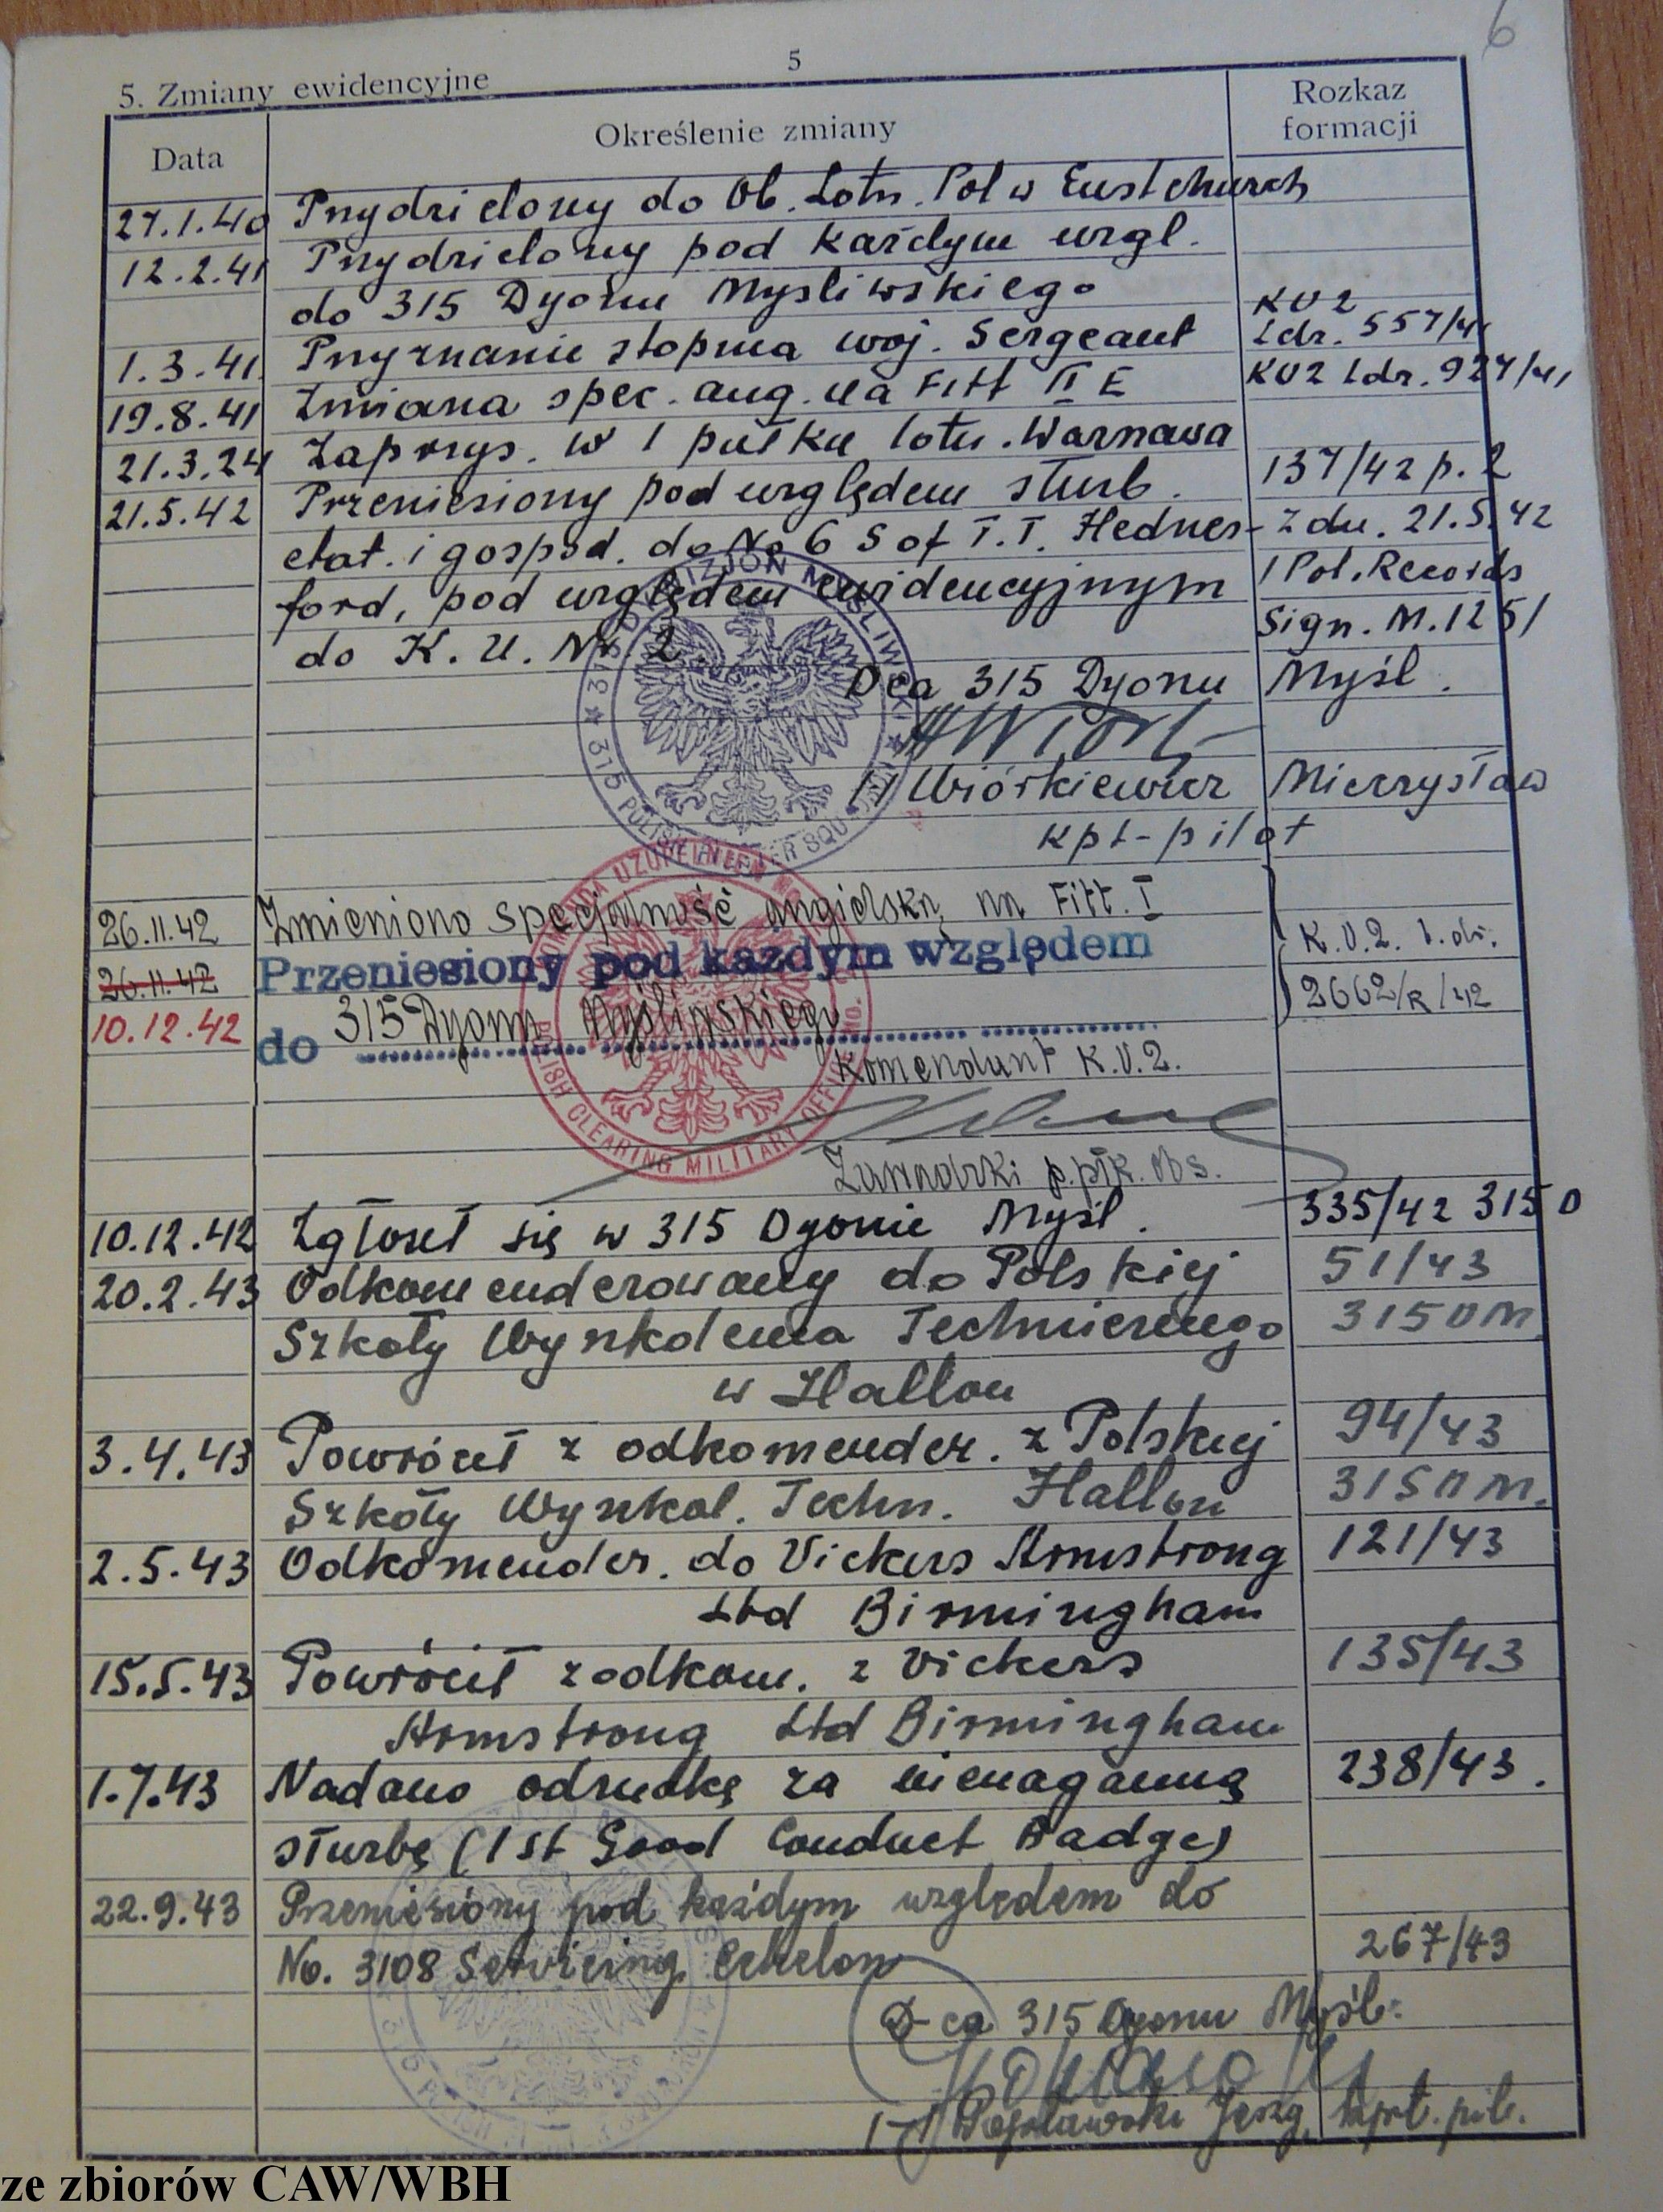 6
5
5. Zmiany ewidencyjne
Data
Określenie zmiany
Rozkaz
formacji
27.1.40 Przydzielony do Ob. Lotn. Pol w Eastchurch
12.2.41 Przydzielony pod każdym wzgl.
do 315 Dyonu Myśliwskiego
1.3.41. Przyznanie stopnia woj. Sergeant KU2 Ldr. 557/41
19.8.41 Zmiana spec. ang. na Fitt II E KU2 Ldr. 927/41
21.3.24 Zaprzys. w 1 pułku lotn. Warszawa
21.5.42 Przeniesiony pod względem służb. 137/42 p. 2
etat. i gospod. do No 6 S of T.T. Hednes- z dn. 21.5.42
ford, pod względem ewidencyjnym 1 Pol. Records
do K. U. Nr. 2. Sign. M. 1251
Dca 315 Dyonu Myśl.
/-/ Wiórkiewicz Mieczysław
kpt-pilot
315 DYWIZJON MYŚLIWSKI
315 POLISH FIGHTER SQUADRON
26.11.42 Zmieniono specjalność angielską na Fitt. I K.U.2. l.dz.
26.11.42 Przeniesiony pod każdym względem 2662/R/42
10.12.42 do 315 Dyonu Myśliwskiego
Komendant K.U.2.
p.płk. obs.
KOMENDA UZUPEŁNIEŃ
POLISH CLEARING MILITARY OFFICE NO.
10.12.42 Zgłosił się w 315 Dyonie Myśl. 335/42 315 D
20.2.43 Odkomenderowany do Polskiej 51/43
Szkoły Wyszkolenia Technicznego 315 D M
w Halton
3.4.43 Powrócił z odkomender. z Polskiej 94/43
Szkoły Wyszkol. Techn. Halton 315 D M.
2.5.43 Odkomender. do Vickers Armstrong 121/43
Ltd Birmingham
15.5.43 Powrócił z odkom. z Vickers 135/43
Armstrong Ltd Birmingham
1.7.43 Nadano odznakę za nienaganną 238/43.
służbę (1st Good Conduct Badge)
22.9.43 Przeniesiony pod każdym względem do
No. 3108 Servicing Echelon 267/43
D-ca 315 Dyonu Myśl.
/-/ Popławski Jerzy, kpt. pil.
ze zbiorów CAW/WBH